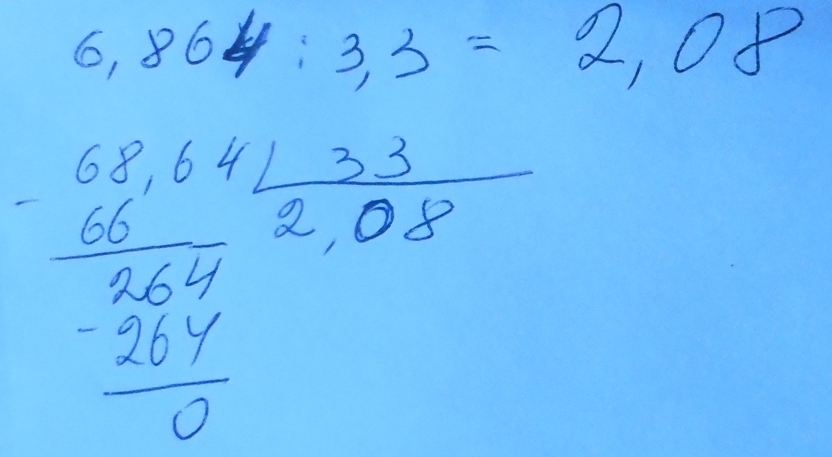 6,864 : 3,3 = 2,08
68,64 33
- 66 2,08
264
- 264
0